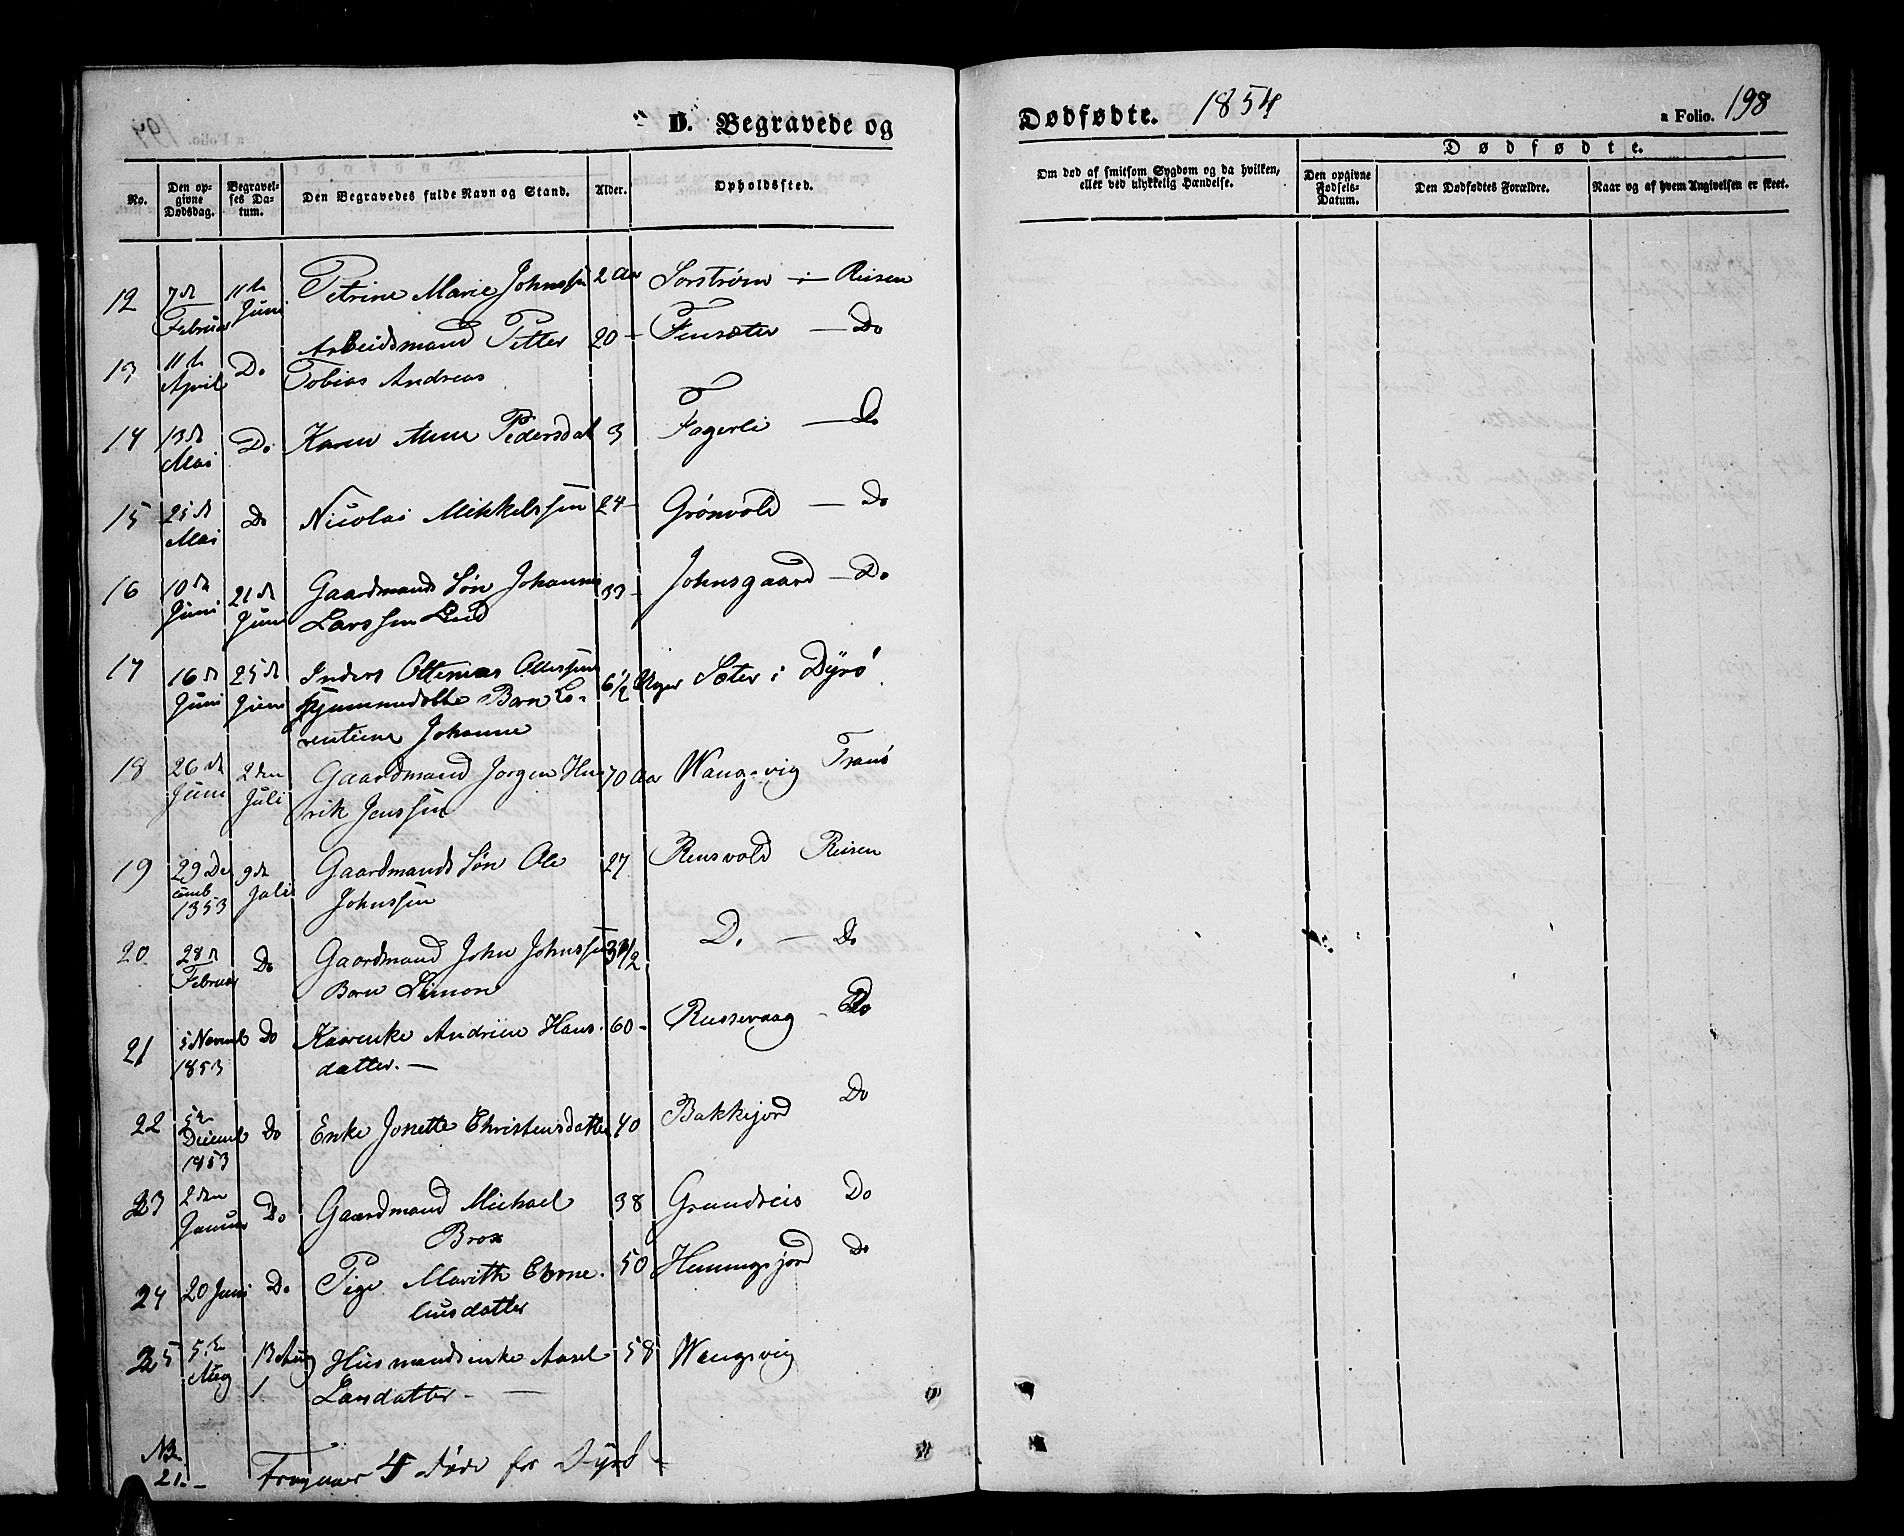 D. Begravede og
Dødfødte. 1854
a Folio. 198
No.
Den opgivne Dødsdag.
Begravelses Datum.
Den Begravedes fulde Navn og Stand.
Alder.
Opholdssted.
Om død af smitsom Sygdom og da hvilken, eller ved ulykkelig Hændelse.
Dødfødte.
Den opgivne Fødsels-Datum.
Den Dødfødtes Forældre.
Naar og af hvem Angivelsen er skeet.
12 7de Februar 11te Juni Petrine Marie Johnssen 2 Aar Sorstrøm i Reisen
13 11te April Do Arbeidsmand Petter 20 - Finsæter — Do
Tobias Andreas
14 13de Mai Do Karen Anne Pedersdat 3 Fagerli — Do
15 25de Mai Do Nicolai Mikkelssen 24 - Grønvold — Do
16 10de Juni 21de Juni Gaardmands Søn Johannes 33 - Johnsgaard — Do
Larssen Lund
17 16de Juni 25de Juni Inders Ottenias Ollessens 6 1/2 Uger Sæter i Dyrø
hjemmedøbte Barn Lo-
rentiene Johanne
18 26de Juni 2den Juli Gaardmand Jørgen Hen 70 Aar Wangsvig Tranø
rik Jenssen
19 29 Decemb 1853 9de Juli Gaardmands Søn Ole 27 Rensvold Reisen
Johnssen
20 28de Februar Do Gaardmand John Johnssens 3 1/2 Do — Do
Barn Simon
21 5 Novemb 1853 Do Karenke Andrine Hans- 60 - Russevaag - Do
datter. —
22 5te Decemb 1853 Do Enke Jonette Christensdatter 40 Bakkejord Do
23 2den Januar Do Gaardmand Michael 38 Grundreis Do
Brox
24 20 Juni Do Pige Marith Corne- 50 Hemmingsjord Do
liusdatter
25 5te Aug 13 Aug Husmandsenke Aasel 58 Wangsvig
Larsdatter —
NB
21. - 4 døde for Dyrø